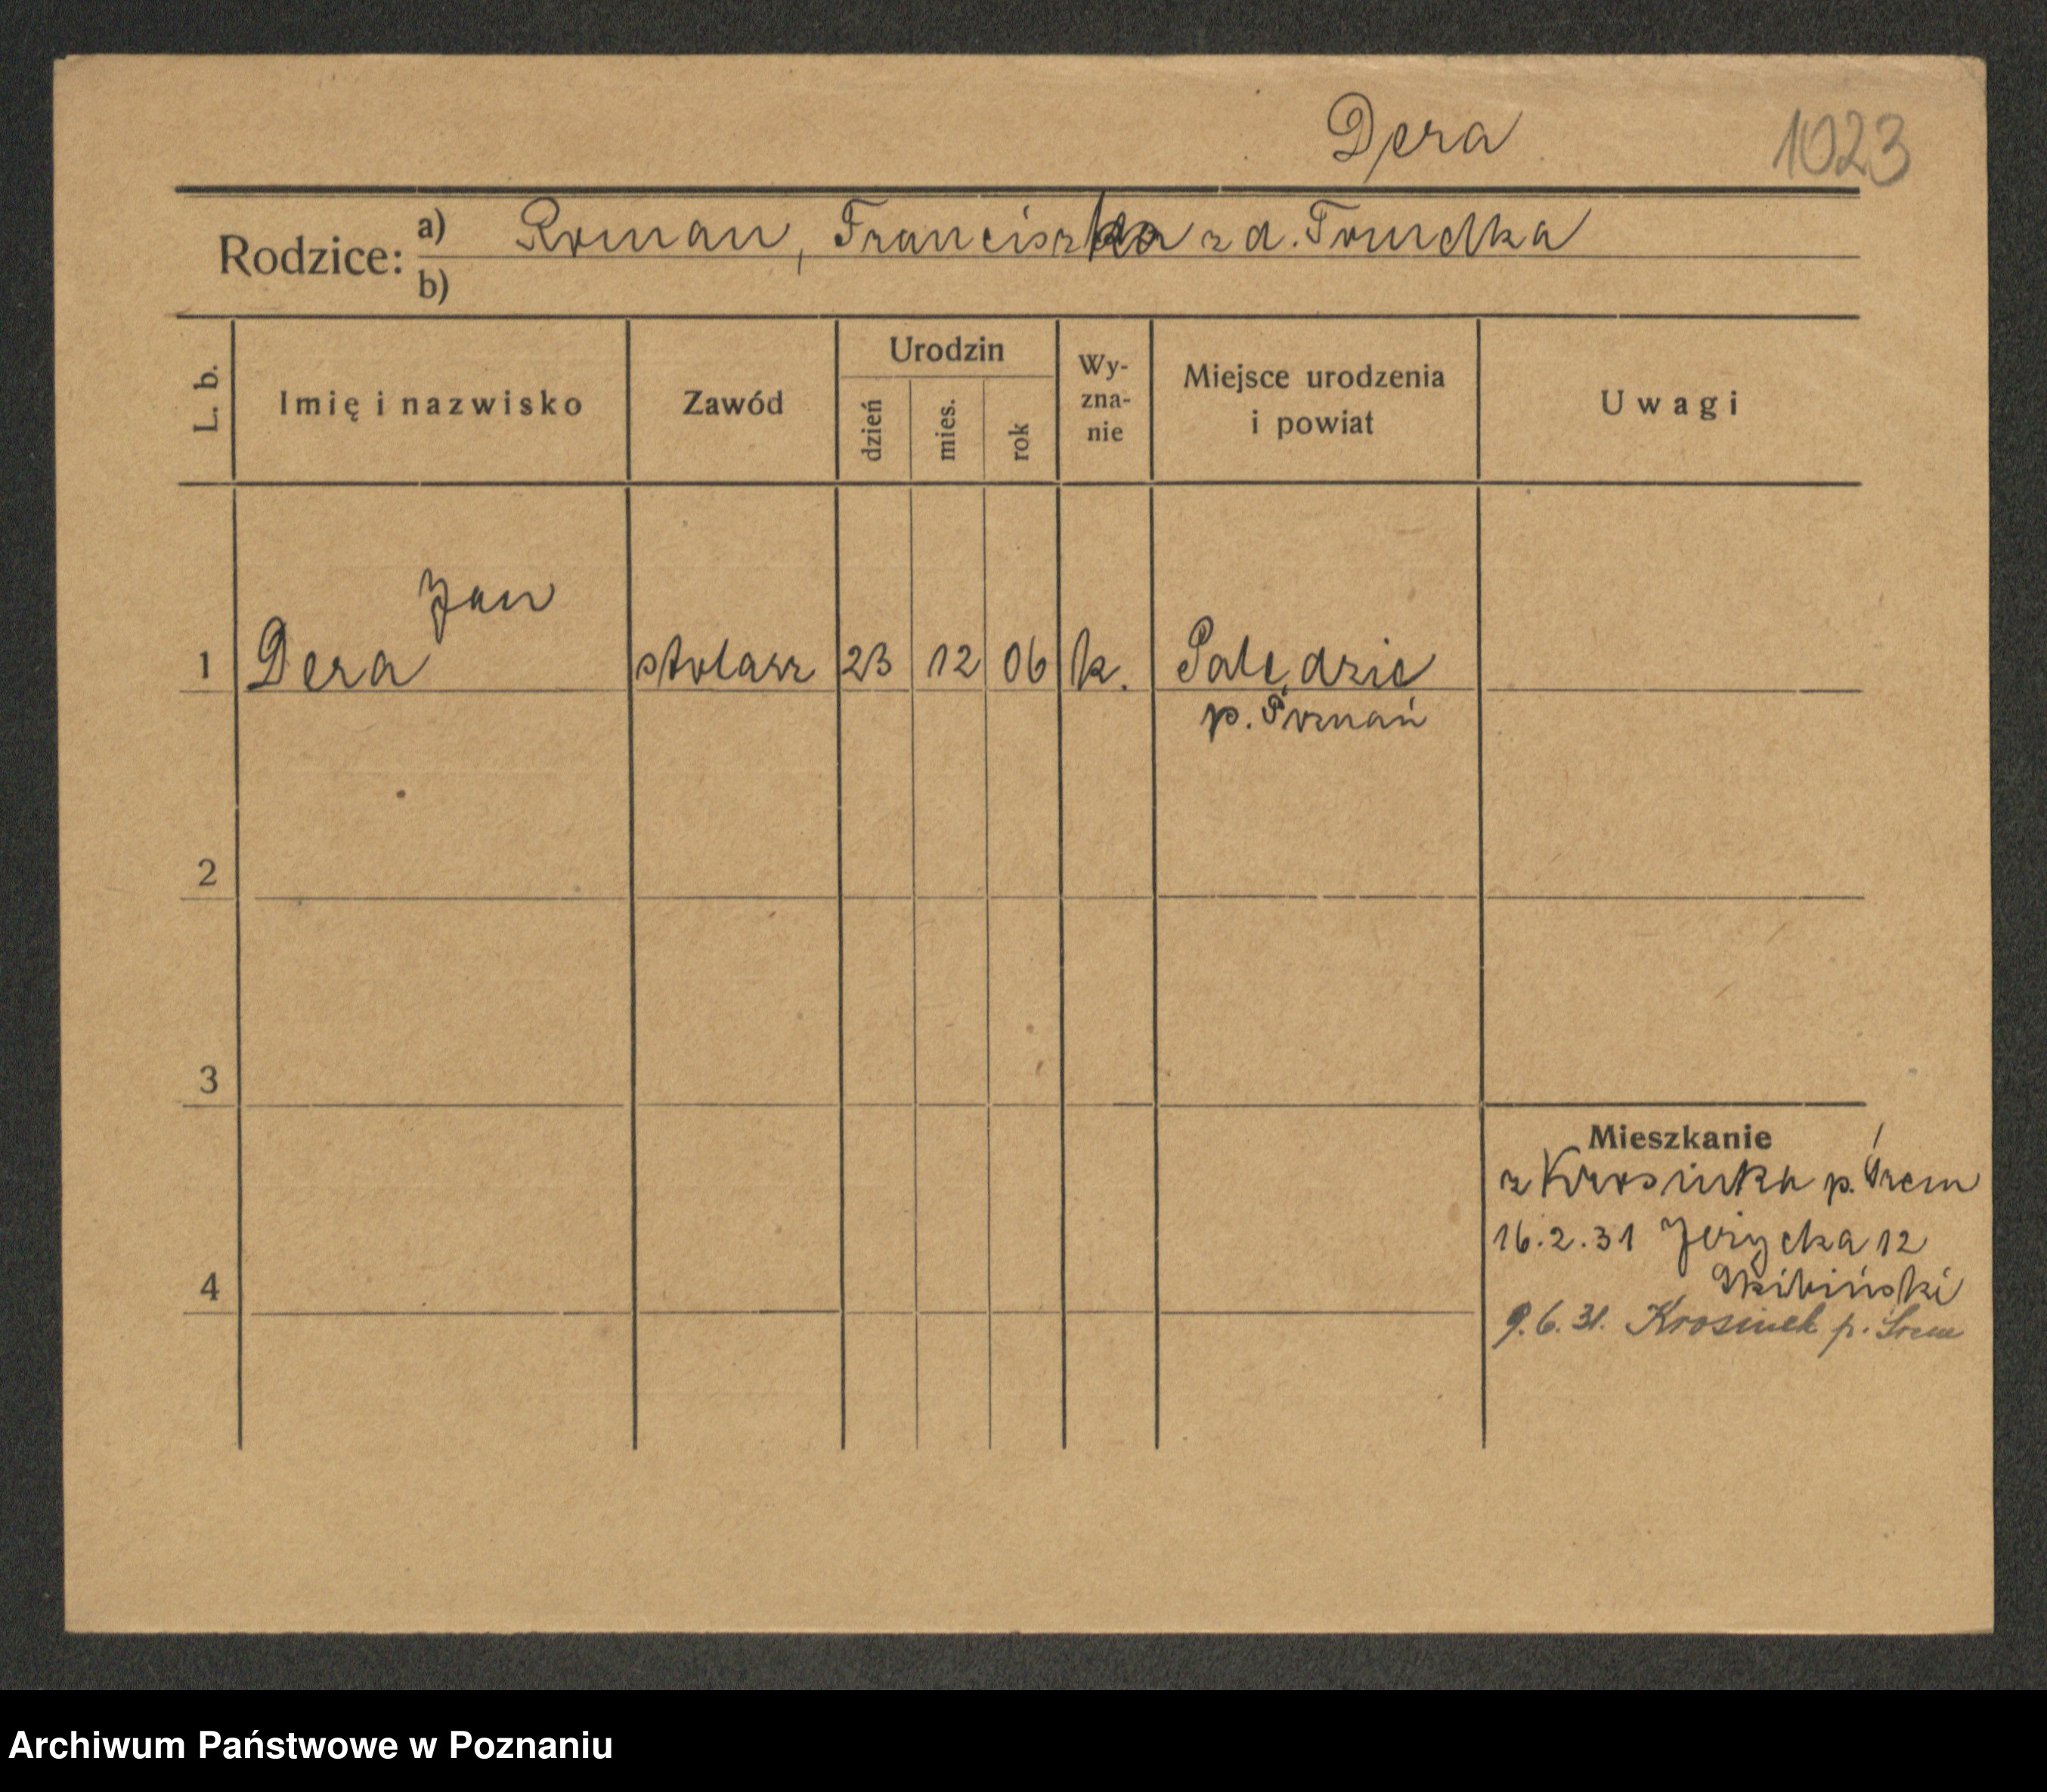 Dera 1023
Rodzice: a) Roman, Franciszka z d. Tomelka
b)
L. b. Imię i nazwisko Zawód Urodzin dzień mies. rok Wy-zna-nie Miejsce urodzenia i powiat Uwagi
Jan
1 Dera stolarz 23 12 06 k. Palędzie
p. Poznań
2
3
Mieszkanie
z Krosinka p. Śrem
16.2.31 Jeżycka 12
4 Skibiński
9.6.31. Krosinek p. Śrem
Archiwum Państwowe w Poznaniu